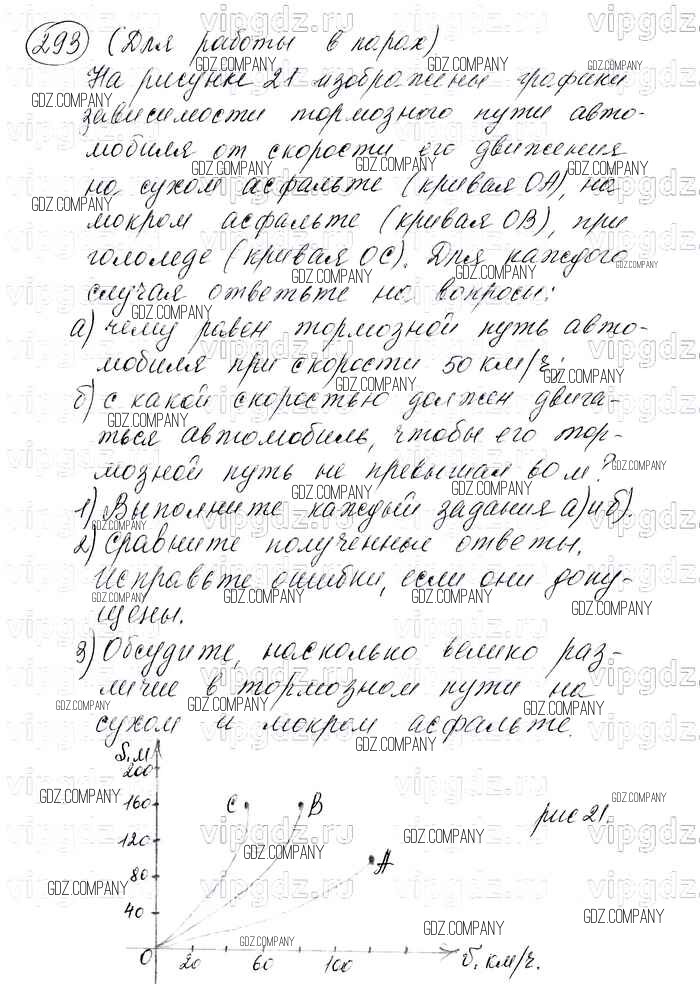 293 (Для работы в парах)
На рисунке 21 изображены графики
зависимости тормозного пути авто-
мобиля от скорости его движения
на сухом асфальте (кривая ОА), на
мокром асфальте (кривая ОВ), при
гололеде (кривая ОС). Для каждого
случая ответьте на вопросы:
а) чему равен тормозной путь авто-
мобиля при скорости 50 км/ч;
б) с какой скоростью должен двига-
ться автомобиль, чтобы его тор-
мозной путь не превышал 60 м?
1) Выполните каждый задания а) и б).
2) Сравните полученные ответы.
Исправьте ошибки, если они допу-
щены.
3) Обсудите, насколько велико раз-
личие в тормозном пути на
сухом и мокром асфальте.
S, м
200
160 C B рис 21.
120
80 A
40
0 20 60 100 v, км/ч.
vipgdz.ru
GDZ.COMPANY